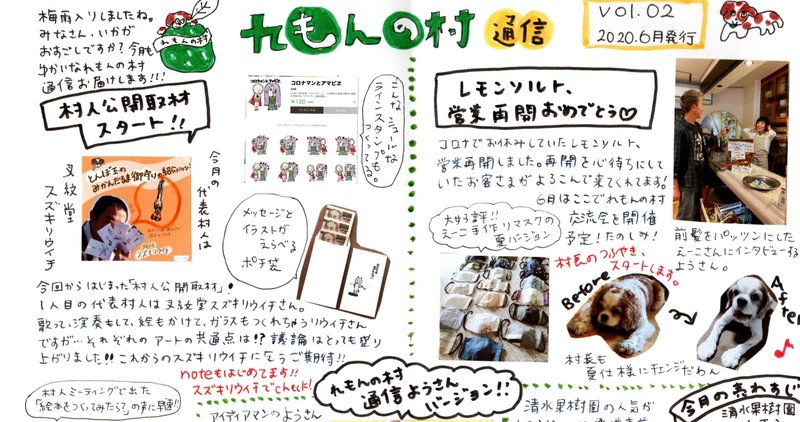 梅雨入りしましたね。
みなさん、いかが
おすごしですか？今月も
ゆかいなれもんの村
通信お届けします!!!
れもんの村
れもんの村
通信
vol.02
2020.6月発行
村人公開取材
スタート!!
今月の
代表村人は
又紋堂
スズキリウイチ
とんぼ玉の
コロナマンとアマビヱ
コロナマンとアマビヱ
¥120
こんなシュールな
ラインスタンプも
つくってる。
メッセージと
イラストが
えらべる
ポチ袋
今回からはじまった「村人公開取材」。
1人目の代表村人は又紋堂スズキリウイチさん。
歌って、演奏もして、絵もかけて、ガラスもつくれちゃうリウイチさん
ですが…それぞれのアートの共通点は!?議論はとっても盛り
上がりました!!これからのスズキリウイチに乞うご期待!!
noteもはじめてます!!
スズキリウイチでcheck!
村人ミーティングで出た
「絵本をつくってみたら？」の声に早速!!
レモンソルト、
営業再開おめでとう♡
コロナでお休みしていたレモンソルト、
営業再開しました。再開を心待ちにして
いたお客さまがよろこんで来てくれてます!
6月はここでれもんの村
交流会を開催
予定!たのしみ!
前髪をパッツンにした
えーこさんにインタビューする
ようさん。
大好評!!
えーこ手作りマスクの
夏バージョン
村長のつぶやき、
スタートします。
Before
After
村長も
夏仕様にチェンジだわん
れもんの村
通信ようさん
バージョン!!
アイディアマンのようさん
清水果樹園の人気が
今月の売れすじ
清水果樹園